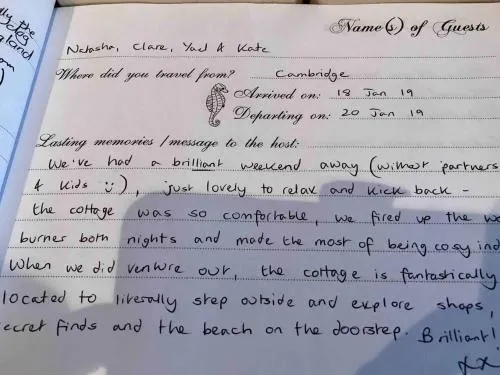 lly the
gland
Name(s) of Guests
Natasha, Clare, Yael & Kate
Where did you travel from? Cambridge
Arrived on: 18 Jan 19
Departing on: 20 Jan 19
Lasting memories / message to the host:
We've had a brilliant weekend away (without partners
& kids :)), just lovely to relax and kick back -
the cottage was so comfortable, we fired up the
burner both nights and made the most of being cosy
When we did venture out, the cottage is fantastically
located to literally step outside and explore shops,
ecret finds and the beach on the doorstep. Brilliant!
xx